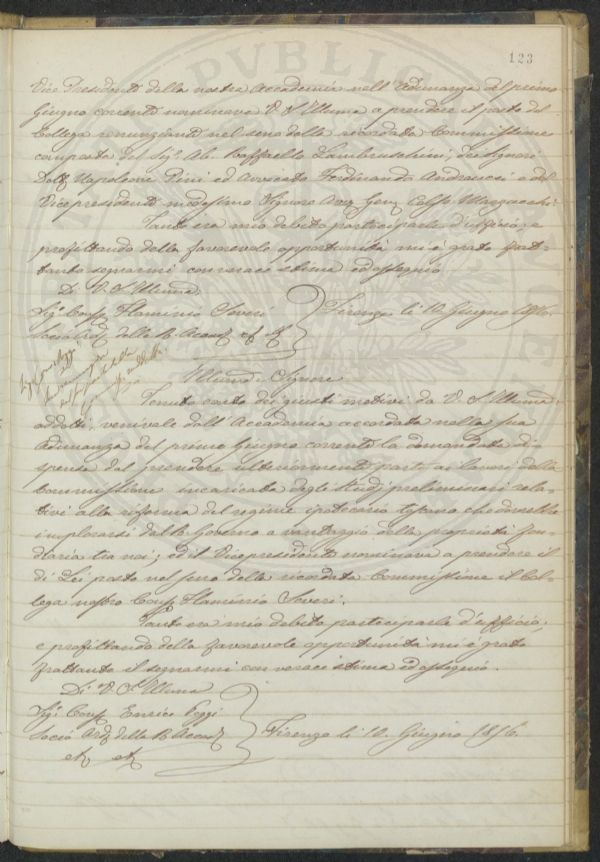 123
Vice Presidente della nostra Accademia nell'Adunanza del primo
Giugno corrente nominava V. S. Illma a prendere il posto del
Collega renunziante nel seno della ricordata Commissione
composta del Sig.r Ab. Raffaello Lambruschini, dei Signori
Dott. Napoleone Pini ed Avvocato Ferdinando Andreucci e del
Vicepresidente medesimo Signore Avv. Gen. Celso Marzucchi.
Tanto era mio debito parteciparle d'ufficio; e
profittando della favorevole opportunità mi è grato frat-
tanto segnarmi con verace stima ed ossequio
Di V. S. Illma
Sig.r Cons. Flaminio Severi
Socio Ord. della R. Accad.
Firenze li 10. Giugno 1856.
Illmo Signore
Tenuto conto dei giusti motivi da V. S. Illma
addotti, venivale dall'Accademia accordata nella sua
Adunanza del primo Giugno corrente la domandata di-
spensa dal prendere ulteriormente parte ai lavori della
Commissione incaricata degli studj preliminari rela-
tivi alla riforma del regime ipotecario toscano che dovrebbe
implorarsi dal R. Governo a vantaggio della proprietà fon-
diaria tra noi; ed il Vicepresidente nominava a prendere il
di Lei posto nel seno della ricordata Commissione il Col-
lega nostro Cons. Flaminio Severi.
Tanto era mio debito parteciparle d'ufficio;
e profittando della favorevole opportunità mi è grato
frattanto il segnarmi con verace stima ed ossequio.
Di V. S. Illma
Sig.r Cons. Enrico Poggi
Socio Ord. della R. Accad.
Firenze li 10. Giugno 1856.